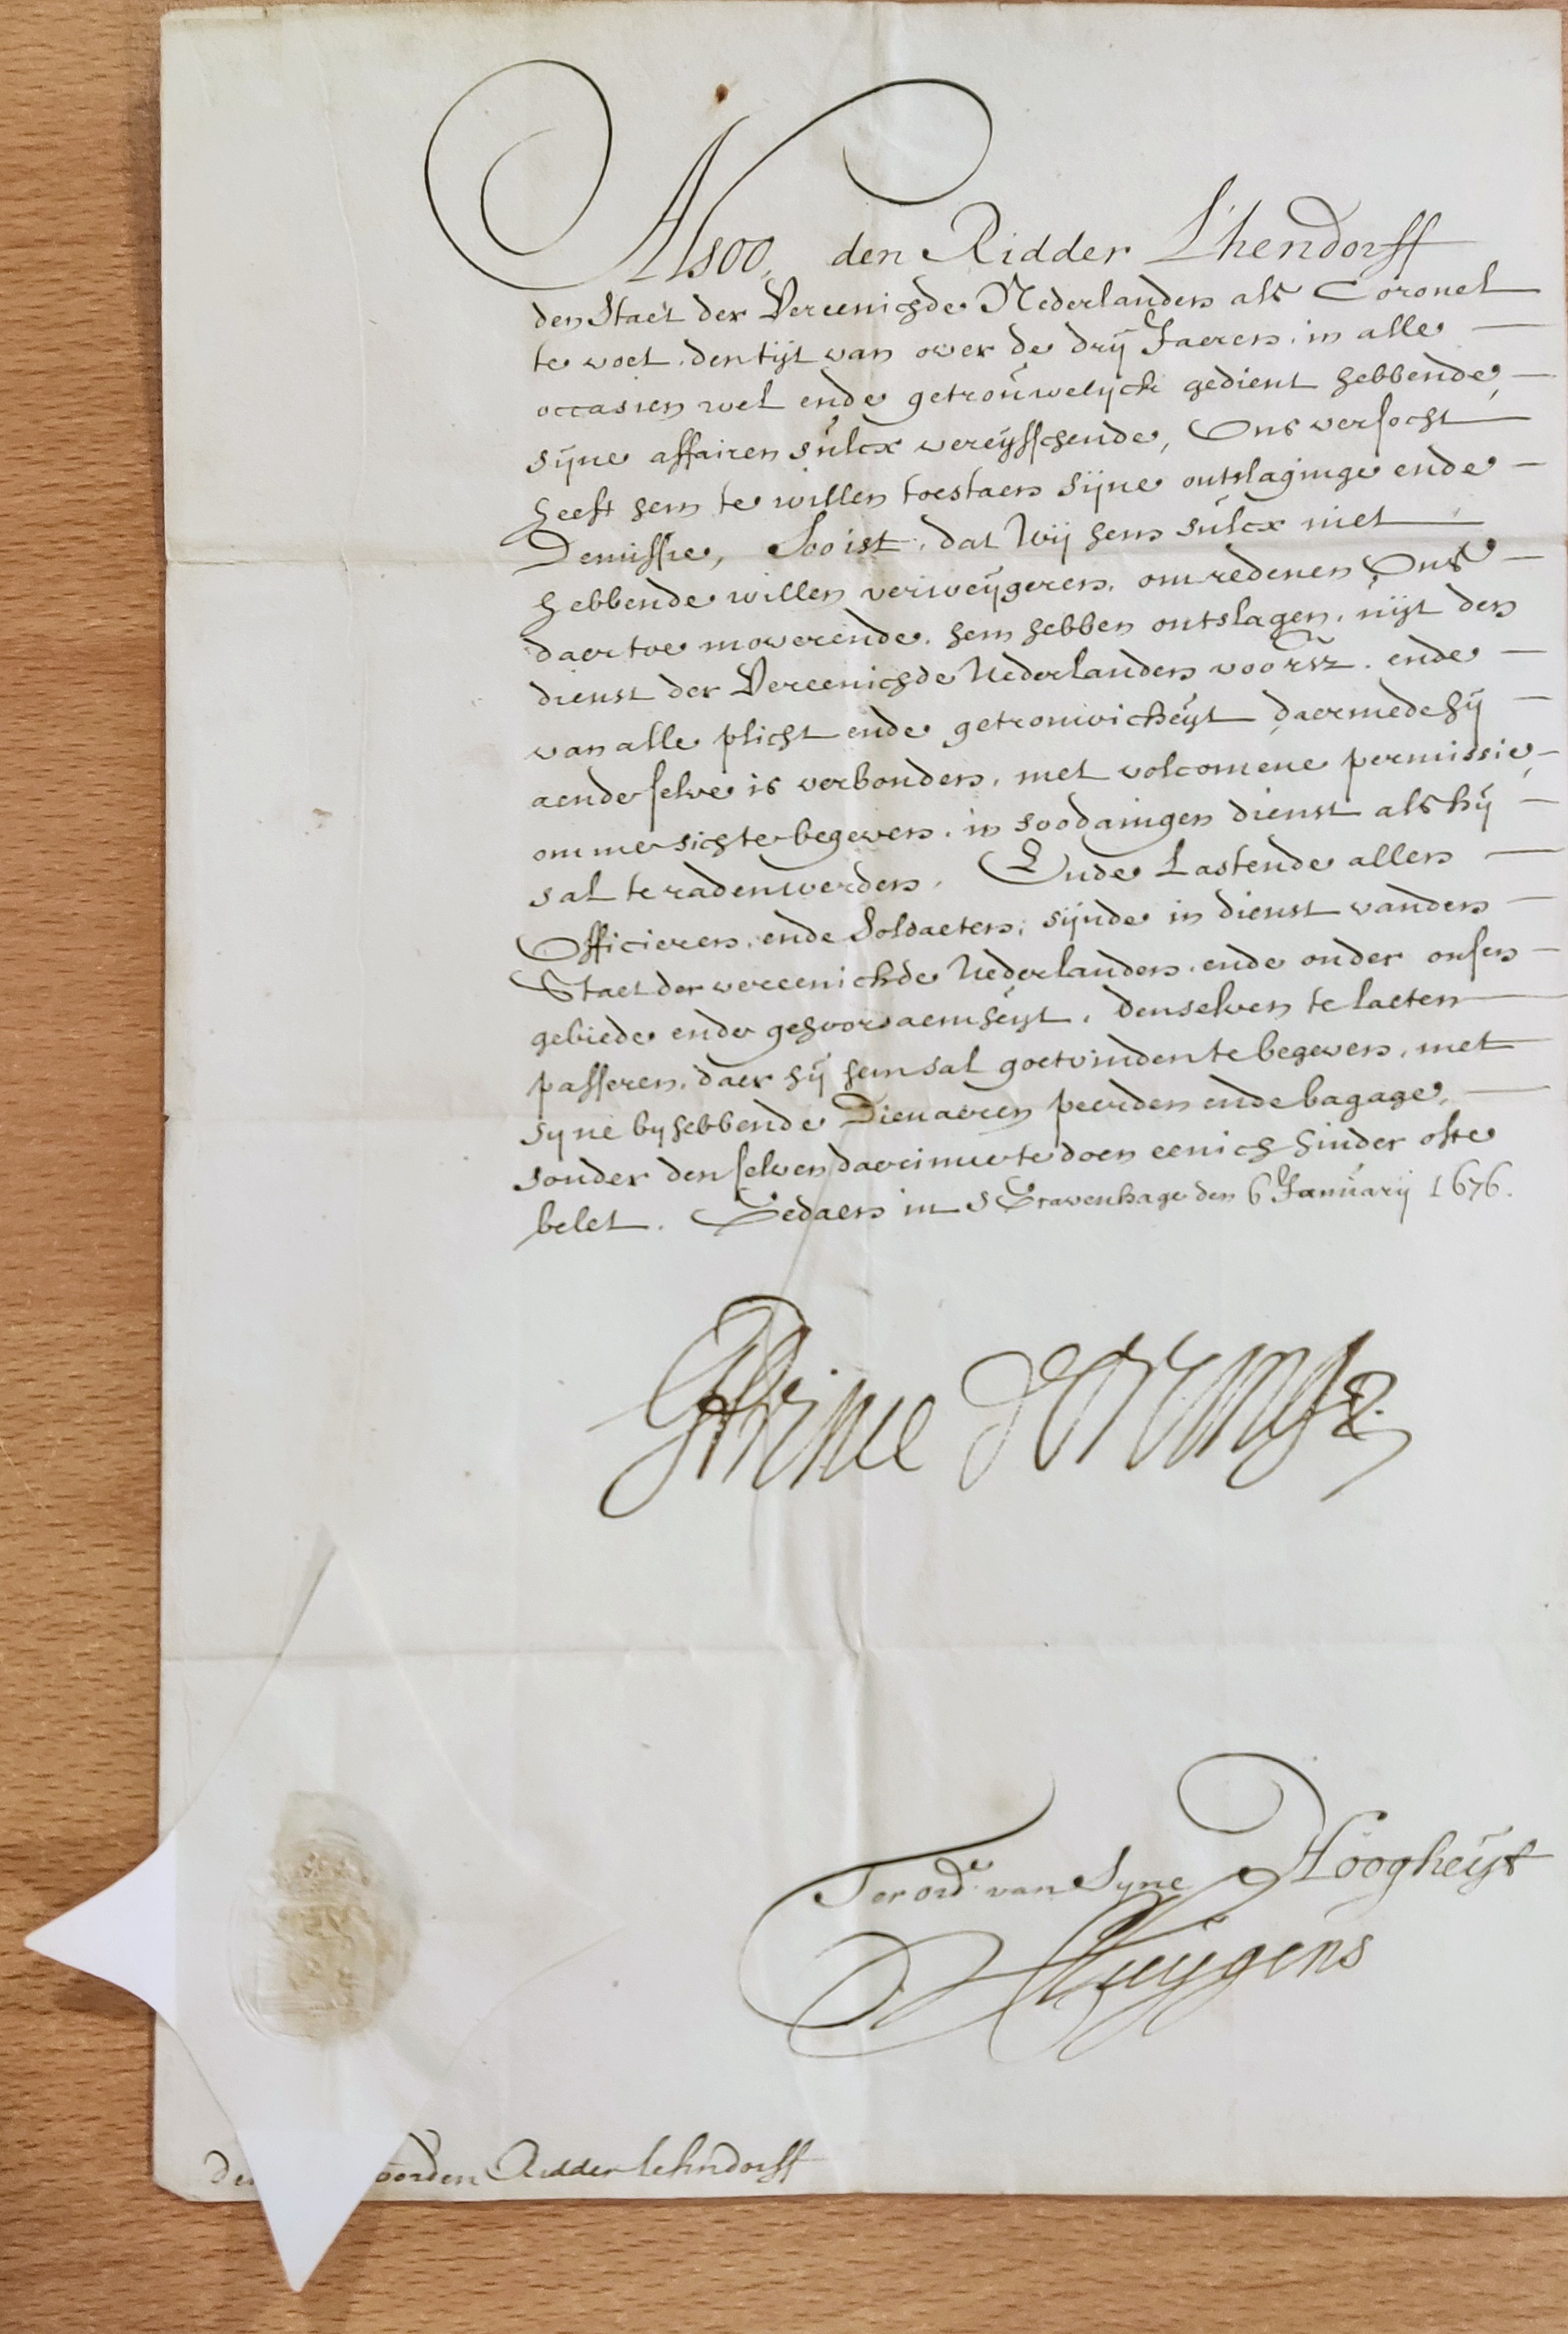 Alsoo, den Ridder Lhendorff
den Staet der Vereenichde Nederlanden als Coronel
te voet, den tijt van over de drij Jaeren, in alle
occasien wel ende getrouwelijck gedient hebbende,
sijne affairen sulcx vereysschende, Ons versocht
heeft hem te willen toestaen sijne ontslaginge ende
Demissie, Soo ist, dat Wij hem sulcx niet
hebbende willen verweijgeren, om redenen Ons
daertoe moverende, hem hebben ontslagen, uijt den
dienst der Vereenichde Nederlanden voorsz. ende
van alle plicht ende getrouwicheyt daermede hij
aende selve is verbonden, met volcomene permissie,
omme sich te begeven, in soodanigen dienst als hij
sal te raden werden. Ende Lastende allen
Officieren, ende Soldaeten, sijnde in dienst vanden
Staet der vereenichde Nederlanden, ende onder onsen
gebiede ende gehoorsaemheyt, denselven te laeten
passeren, daer hij hem sal goetvinden te begeven, met
syne byhebbende Dienaeren peerden ende bagage,
sonder den selven daerinne te doen eenich hinder ofte
belet. Gedaen in s Gravenhage den 6 January 1676.
G Prince d'Orange
Ter ordre van Syne Hoogheijt
Huygens
Ridder Lehndorff